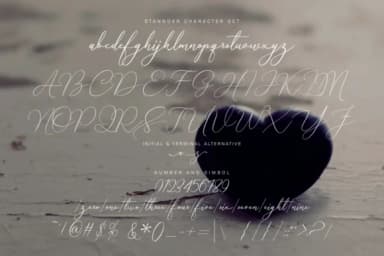 STANDARD CHARACTER SET
abcdefghijklmnopqrstuvwxyz
ABCDEFGHIJKLM
NOPQRSTUVWXYZ
INITIAL & TERMINAL ALTERNATIVE
NUMBER AND SIMBOL
0123456789
zero/one/two/three/four/five/six/seven/eight/nine